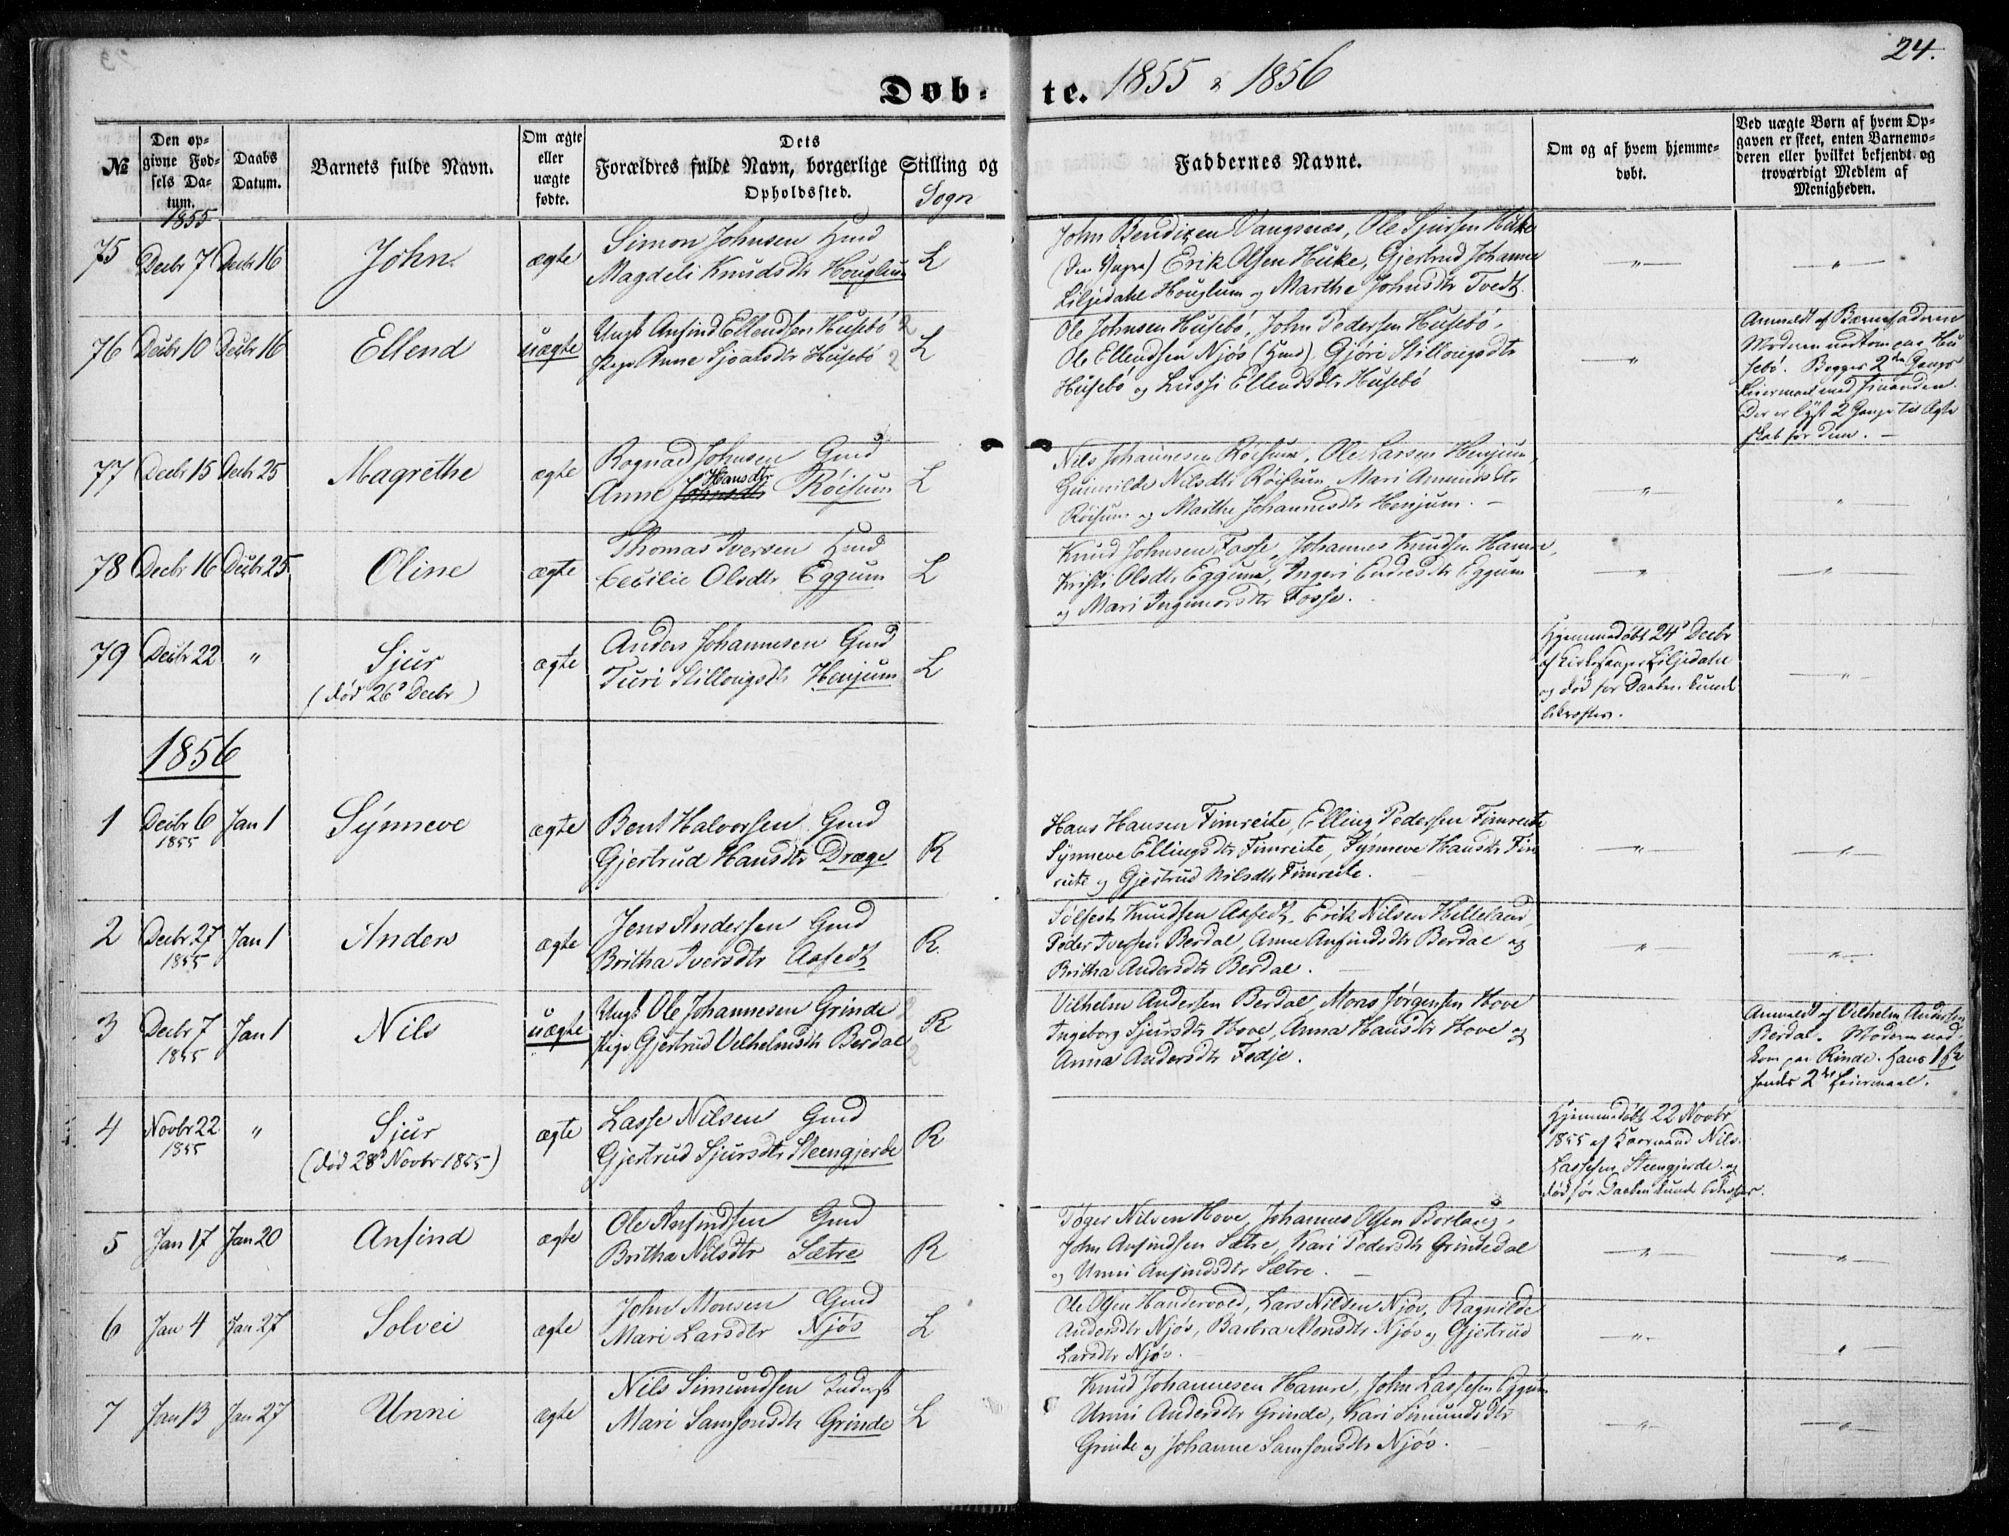 24.
Døb-te. 1855 & 1856
№
Den op-
givne Fød-
sels Da-
tum.
Daabs
Datum.
Barnets fulde Navn.
Om ægte
eller
uægte
fødte.
Dets
Forældres fulde Navn, borgerlige Stilling og
Opholdssted.
Sogn
Faddernes Navne.
Om og af hvem hjemme-
døbt.
Ved uægte Børn af hvem Op-
gaven er skeet, enten Barnemo-
deren eller hvilket bekjendt og
troværdigt Medlem af
Menigheden.
1855
75 Decbr 7 Decbr 16 John ægte
Simon Johnsen Hmd
Magdeli Knudsdtr Houglum L
John Bendixen Vangsnæs, Ole Sjursen Huke
(den Yngre) Erik Olsen Huke, Gjertrud Johanne
Liljedahl Houglum og Marthe Johnsdtr Tvedt
76 Decbr 10 Decbr 16 Ellend uægte
Ungk Anfind Ellendsen Husebø 2
Pige Anne Sjoatsdtr Husebø 2 L
Ole Johnsen Husebø, John Pedersen Husebø,
Ole Ellendsen Njøs (Hmd) Gjøri Stillougsdtr
Husebø og Lussi Ellendsdtr Husebø
Anmeldt af Barnefaderen
Moderen nedkom paa Hu
sebø. Begges 2den Gangs
Leiermaal med hinanden.
Der er lyst 2 Gange til Ægte
skab for dem. -
77 Decbr 15 Decbr 25 Magrethe ægte
Ragnad Johnsen Gmd
Hansdtr
Anne Johnsdtr Røisum L
Nils Johannesen Røisum, Ole Larsen Henjum,
Nilsdtr Røisum, Mari Amundsdtr
Røisum og Marthe Johannesdtr Henjum. -
78 Decbr 16 Decbr 25. Oline ægte
Thomas Iversen Hmd
Cecilie Olsdtr Eggum L
Knud Johnsen Fosse, Johannes Knudsen Hamre,
Kristi Olsdtr Eggum, Ingeri Endresdtr Eggum
og Mari Ingemorsdtr Fosse.
79 Decbr 22 " Sjur ægte
(død 26de Decbr)
Anders Johannesen Gmd
Turi Stillougsdtr Henjum L
Hjemmedøbt 24de Decbr
af Kirkesanger Liljedahl
og død før Daaben kunde
bekræftes.
1856
1 Decbr 6 Jan 1 Synneve ægte
1855
Bent Halvorsen Gmd
Gjertrud Hansdtr Dræge R
Hans Hansen Fimreite, Elling Pedersen Fimreite
Synneve Ellingsdtr Fimreite, Synneve Hansdtr Fim
reite og Gjertrud Nilsdtr Fimreite.
2 Decbr 27 Jan 1 Anders ægte
1855
Jens Andersen Gmd
Britha Iversdtr Aafedt R.
Sølfest Knudsen Aafedt, Erik Nilsen Helleland,
Peder Iversen Berdal, Anne Anfindsdtr Berdal og
Britha Andersdtr Berdal.
3 Decbr 7 Jan 1 Nils uægte
1855
Ungk Ole Johannesen Grinde 2
Pige Gjertrud Vilhelmsdtr Berdal 2 R
Vilhelm Andersen Berdal, Mons Jørgensen Hove
Ingeborg Sjursdtr Hove, Anna Hansdtr Hove og
Anna Andersdtr Fedje.
Anmeldt af Vilhelm Andersen
Berdal. Moderen ned
kom paa Rinde. Hans 1ste
hendes 2det Leiermaal.
4 Novbr 22 " Sjur ægte
1855
(død 28de Novbr 1855)
Lasse Nilsen Gmd
Gjertrud Sjursdtr Steengjerde R
Hjemmedøbt 22 Novbr
1855 af Kaarmand Nils
Lassesen Steengjerde og
død før Daaben kunde bekræftes.
5 Jan 17 Jan 20 Anfind ægte
Ole Anfindsen Gmd
Britha Nilsdtr Sætre R
Tøger Nilsen Hove, Johannes Olsen Borlaug,
John Anfindsen Sætre, Kari Pedersdtr Grindedal
og Unni Anfindsdtr Sætre.
6 Jan 4 Jan 27 Solvei ægte
John Monsen Gmd
Mari Larsdtr Njøs L
Ole Olsen Handevold, Lars Nilsen Njøs, Ragnilde
Andersdtr Njøs, Barbra Monsdtr Njøs og Gjertrud
Larsdtr Njøs.
7 Jan 13 Jan 27 Unni ægte
Nils Simundsen Inderst
Mari Samsonsdtr Grinde L
Knud Johannesen Hamre, John Lassesen Eggum
Unni Andersdtr Grinde, Kari Simundsdtr
Grinde og Johanne Samsonsdtr Njøs.